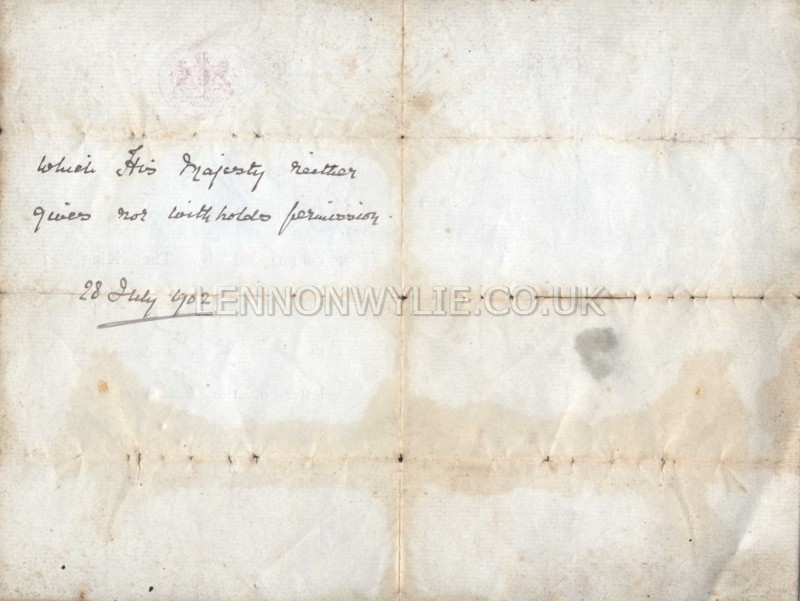 which His Majesty neither
gives nor withholds permission.
28 July 1902
LENNONWYLIE.CO.UK